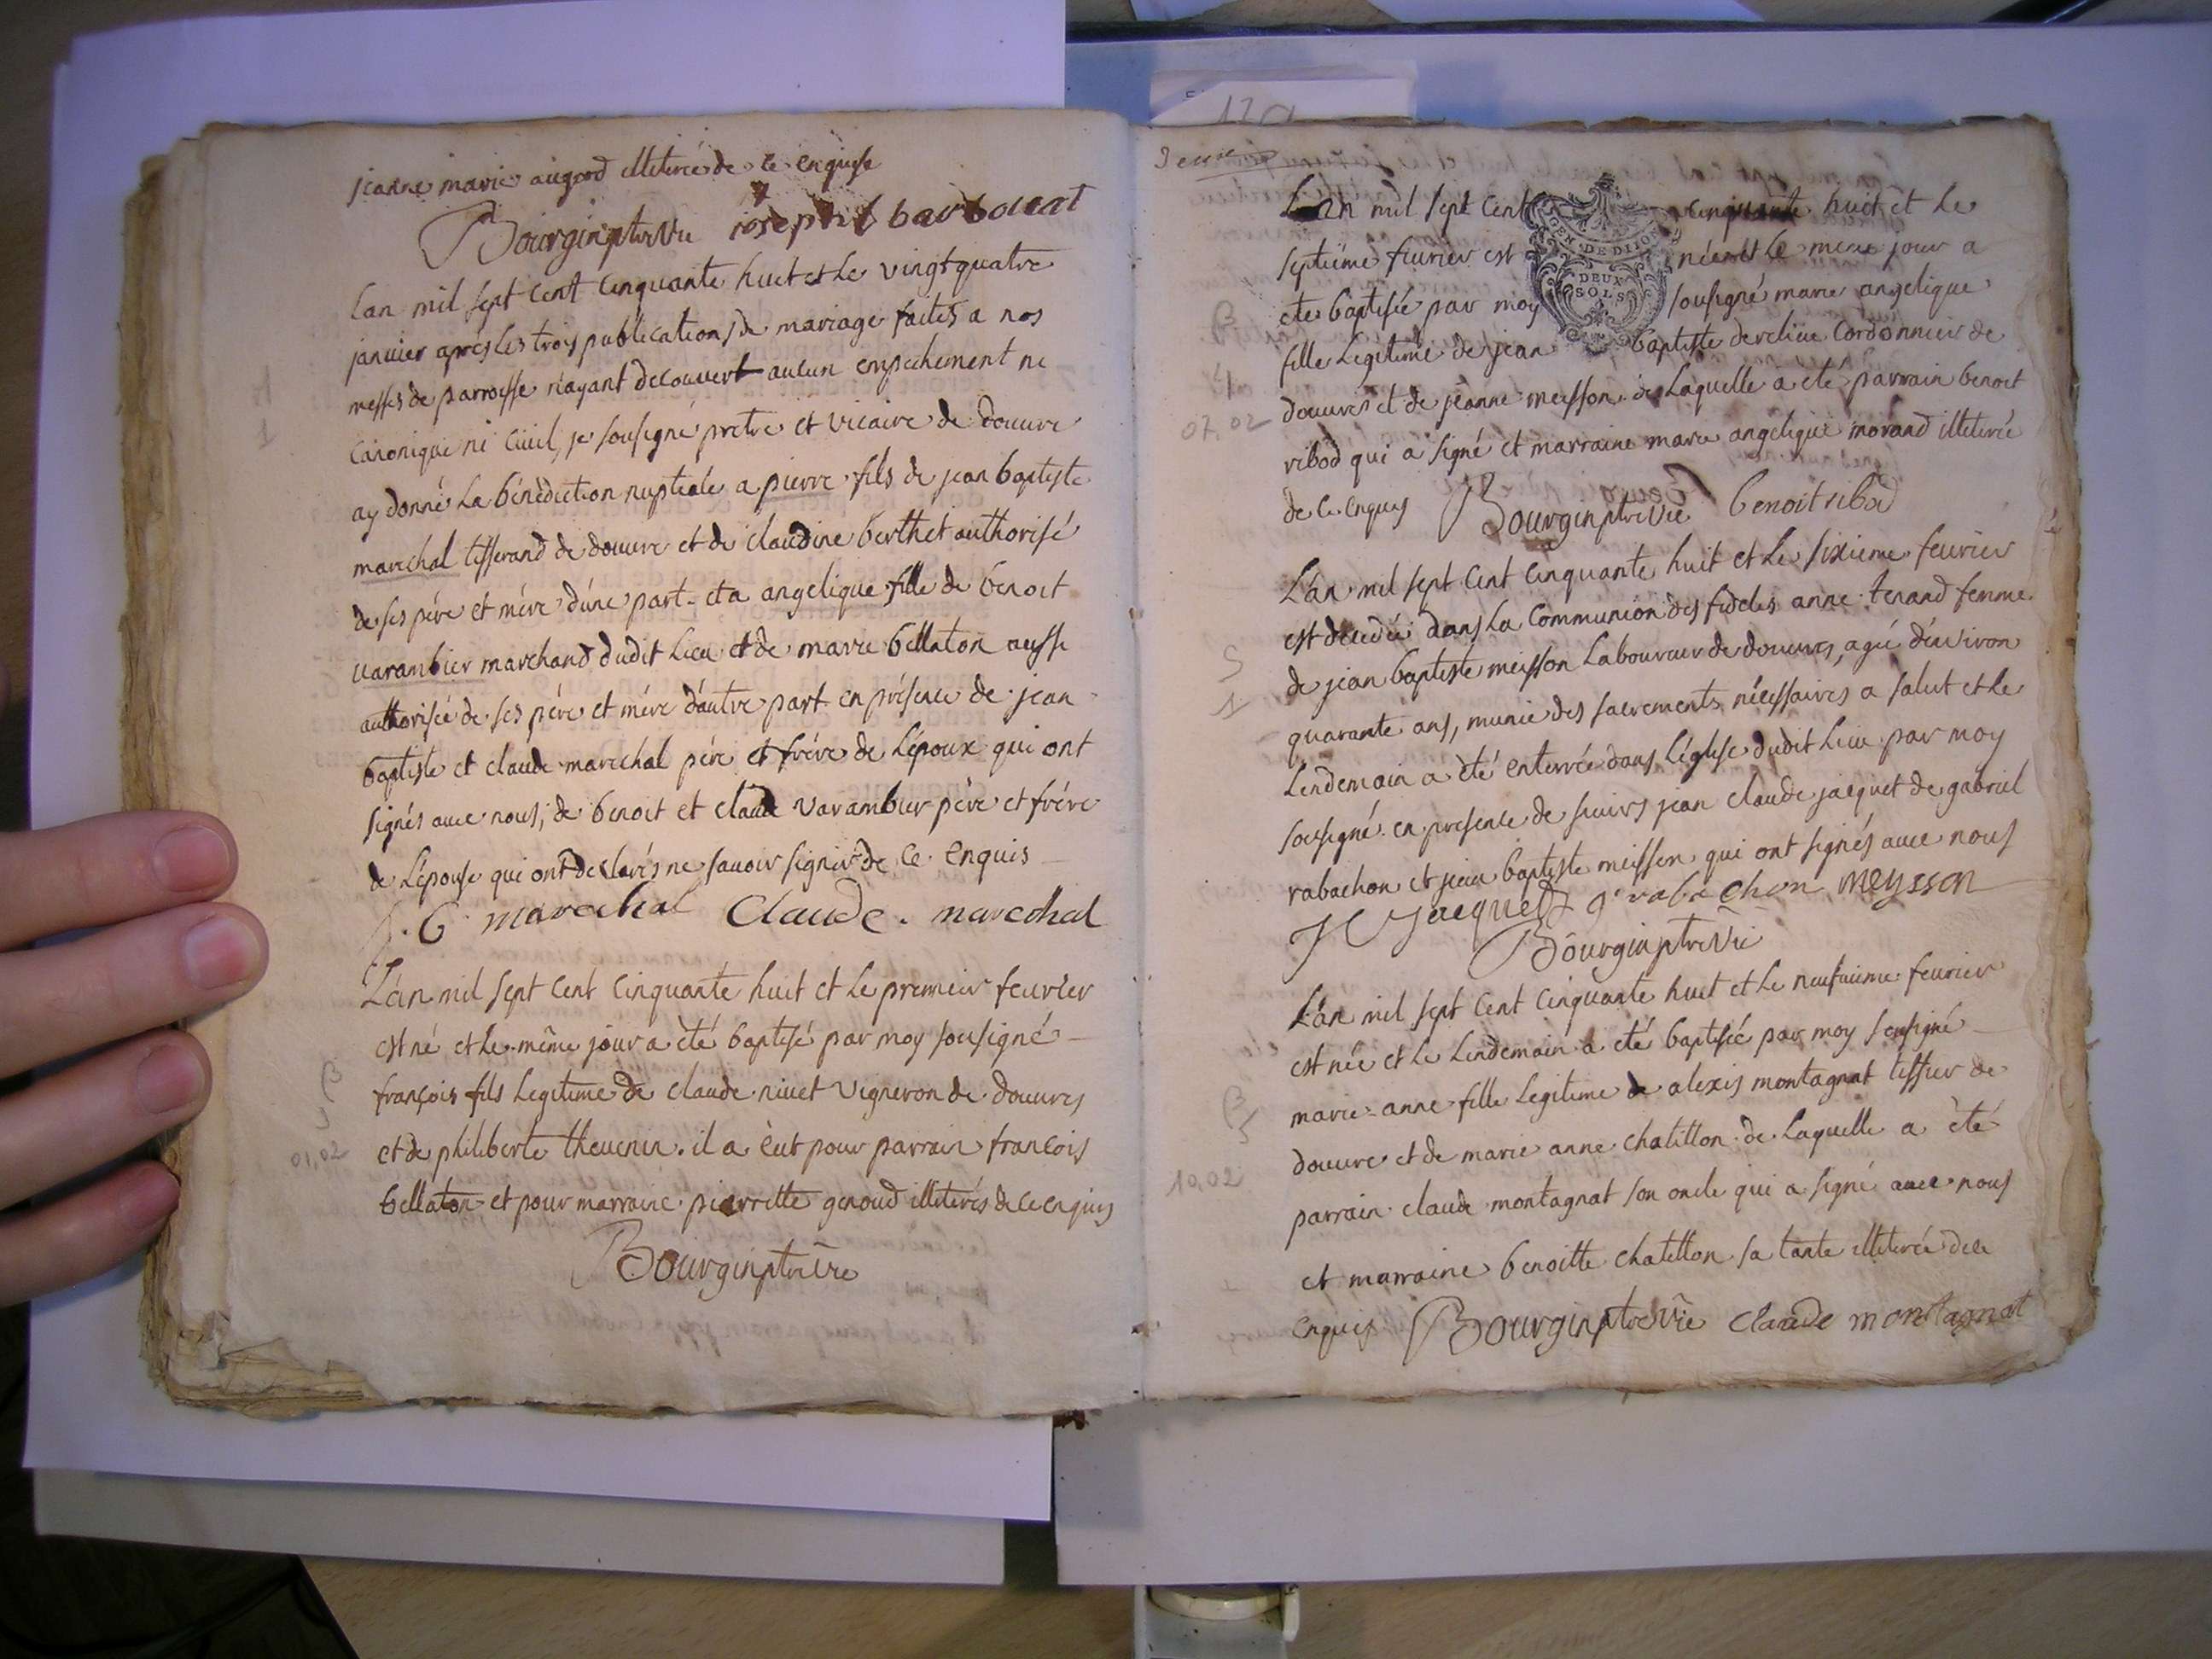 jeanne marie augerd illiterée de ce enquise
Bourgin ptre vic joseph barbarat
Lan mil sept cent cinquante huit et le vingt quatre
janvier après les trois publications de mariage faites a nos
messes de parroisse n'ayant decouvert aucun empechement ni
canonique ni civil, je soussigné pretre et vicaire de douvre
ay donné La bénédiction nuptiale a pierre fils de jean baptiste
marechal tisserand de douvre et de claudine berthet authorisé
de ses père et mère d'une part et a angelique fille de benoit
varambier marchand dudit Lieu et de marie bellaton aussi
authorisée de ses père et mère d'autre part en présence de jean
baptiste et claude marechal père et frère de L'époux qui ont
signés avec nous, de benoit et claude varambier père et frère
de L'épouse qui ont declarés ne savoir signer de ce enquis
J. b marechal Claude. marechal
H
1
L'an mil sept cent cinquante huit et le premier fevrier
est né et le même jour a été baptisé par moy soussigné
françois fils Legitime de claude nivet vigneron de douvres
et de philiberte thevenin. il a eut pour parrain françois
bellaton et pour marraine pierrette genoud illiterés de ce enquis
Bourgin ptre vic
B
01,02
3eme
L'an mil sept cent cinquante huit et Le
septième fevrier est née et le meme jour a
été baptisée par moy soussigné marie angelique
fille Legitime de jean baptiste dereline Cordonnier de
douvres et de jeanne meisson de Laquelle a été parrain benoit
ribod qui a signé et marraine marie angelique morand illiterée
de ce enquis Bourgin ptre vic benoit ribod
B
4
07,02
GEN. DE DIJON
DEUX
SOLS
L'an mil sept cent cinquante huit et Le sixieme fevrier
est decedée dans La Communion des fideles anne tenand femme
de jean baptiste meisson Laboureur de douvres, agée d'environ
quarante ans, munie des sacrements nécessaires a salut et le
Lendemain a été enterrée dans L'église dudit Lieu par moy
soussigné en presence de sieurs jean claude jacquet de gabriel
rabachon et jean baptiste meisson qui ont signés avec nous
J C Jacquet g rabachon meysson
Bourgin ptre vic
S
1
L'an mil sept cent cinquante huit et Le neufvieme fevrier
est née et Le Lendemain a été baptisée par moy soussigné
marie-anne fille Legitime de alexis montagnat tissier de
douvre et de marie anne chatillon de Laquelle a été
parrain claude montagnat son oncle qui a signé avec nous
et marraine benoitte chatillon sa tante illiterée de ce
enquis Bourgin ptre vic claude montagnat
B
5
10,02